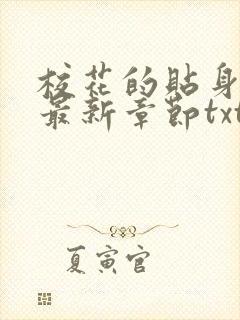 校花的貼身
最新章節txt
夏寅官